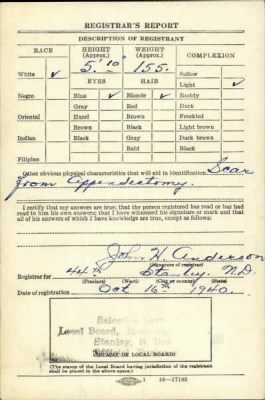 REGISTRAR'S REPORT
DESCRIPTION OF REGISTRANT
RACE HEIGHT (Approx.) WEIGHT (Approx.) COMPLEXION
5' 10" 155 Sallow
White ✓ EYES HAIR Light ✓
Negro Blue ✓ Blonde ✓ Ruddy
Gray Red Dark
Oriental Hazel Brown Freckled
Brown Black Light brown
Indian Black Gray Dark brown
Bald Black
Filipino
Other obvious physical characteristics that will aid in identification Scar
from appendectomy.
I certify that my answers are true; that the person registered has read or has had
read to him his own answers; that I have witnessed his signature or mark and that
all of his answers of which I have knowledge are true, except as follows:
John H. Anderson
(Signature of registrar)
Registrar for 4th Stanley N.D.
(Precinct) (Ward) (City or county) (State)
Date of registration Oct 16th 1940.
Local Board,
Stanley, N.
(STAMP OF LOCAL BOARD)
(The stamp of the Local Board having jurisdiction of the registrant shall be
placed in the above space.)
16—17105